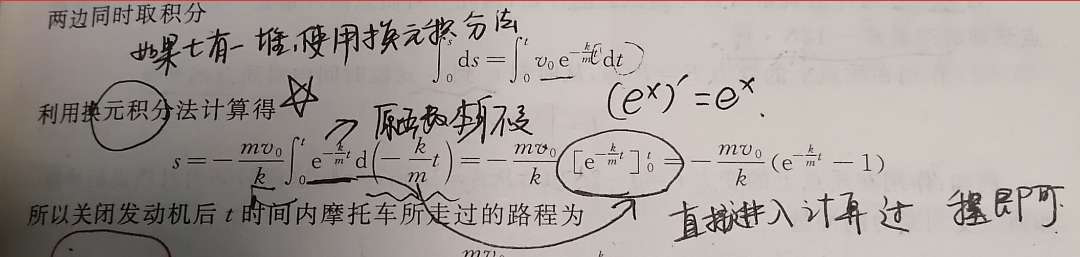 两边同时取积分
如果t有一堆,使用换元积分法
∫₀ˢ ds = ∫₀ᵗ v₀ e^{-\frac{k}{m}t} dt
利用换元积分法计算得
(eˣ)′ = eˣ.
原函数 不变
s = -\frac{mv₀}{k} ∫₀ᵗ e^{-\frac{k}{m}t} d(-\frac{k}{m}t) = -\frac{mv₀}{k} [e^{-\frac{k}{m}t}]₀ᵗ = -\frac{mv₀}{k} (e^{-\frac{k}{m}t} - 1)
所以关闭发动机后 t 时间内摩托车所走过的路程为
直接进入计算过 程即可.
mv₀